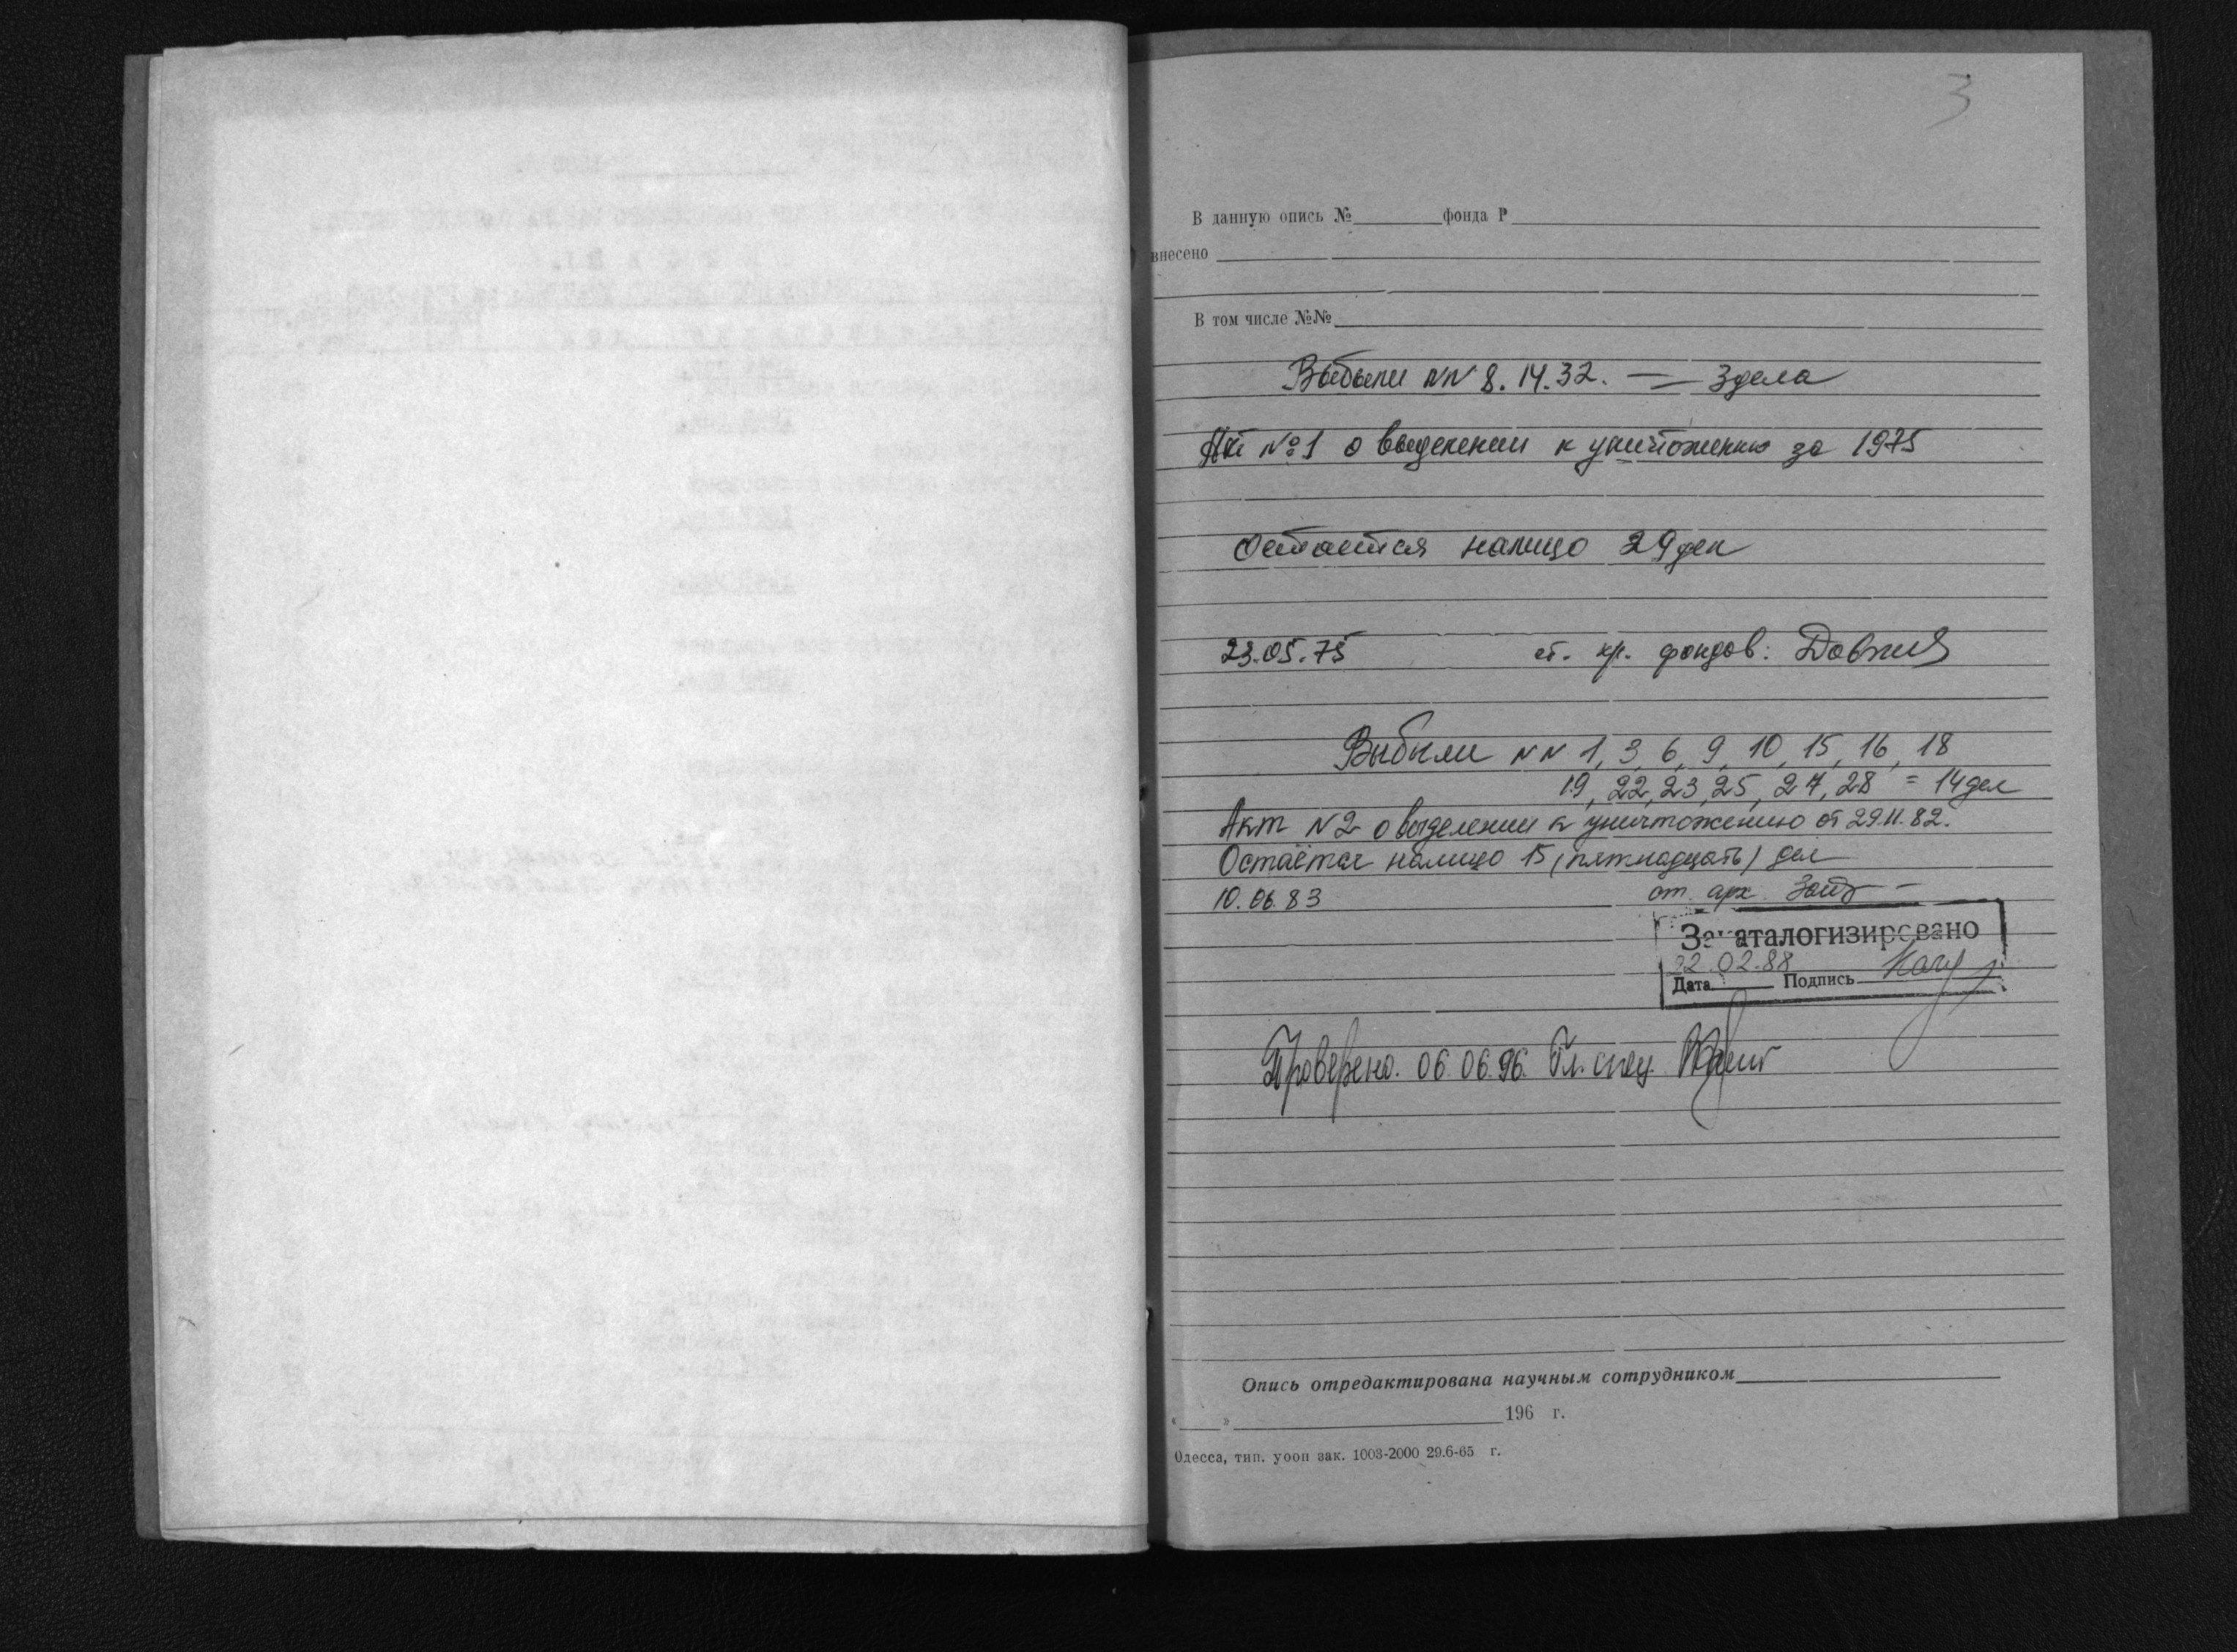 3
В данную опись №________фонда Р
внесено
В том числе №№
Выбыли NN 8. 14. 32. — 3 дела
Акт №1 о выделении к уничтожению за 1975
Остается налицо 29 дел
23.05.75 ст. хр. фондов:
Выбыли NN 1, 3, 6, 9, 10, 15, 16, 18
19, 22, 23, 25, 27, 28 = 14 дел
Акт N2 о выделении к уничтожению от 29.11.82.
Остаётся налицо 15 (пятнадцать) дел
10.06.83 ст. арх.
Закаталогизировано
22.02.88
Дата Подпись
Проверено. 06.06.96. Гл. спец.
Опись отредактирована научным сотрудником
«____»____________196 г.
Одесса, тип. уооп зак. 1003-2000 29.6-65 г.